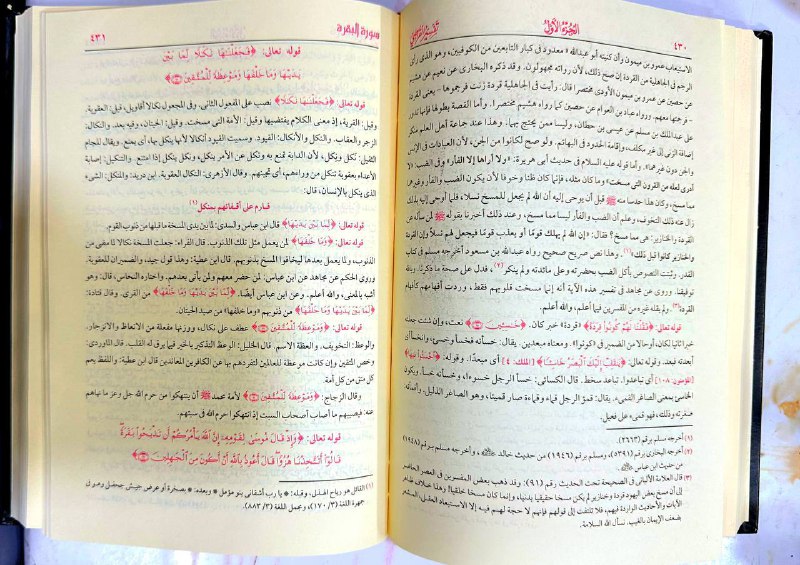 ٤٣٠
الجزء الأول
تفسير القرطبي
الاستيعاب عمرو بن ميمون وأن كنيته أبو عبد الله « معدود في كبار التابعين من الكوفيين، وهو الذي رأى
الرجم في الجاهلية من القردة إن صح ذلك، لأن رواته مجهولون. وقد ذكره البخاري عن نعيم عن هشيم
عن حصين عن عمرو بن ميمون الأودي مختصرا قال: رأيت في الجاهلية قردة زنت فرجموها - يعني القردة
- فرجمتها معهم. ورواه عباد بن العوام عن حصين كما رواه هشيم مختصرا. وأما القصة بطولها فإنها تدور
على عبد الملك بن مسلم عن عيسى بن حطان، وليسا ممن يحتج بهما. وهذا عند جماعة أهل العلم منكر
إضافة الزنى إلى غير مكلف، وإقامة الحدود في البهائم. ولو صح لكانوا من الجن، لأن العبادات في الإنس
والجن دون غيرهما». وأما قوله عليه السلام في حديث أبي هريرة: «ولا أراها إلا الفأر» وفي الضب: «لا
أدري لعله من القرون التي مسخت» وما كان مثله، فإنما كان ظنا وخوفا لأن يكون الضب والفأر وغيرهما
مما مسخ، وكان هذا حدسا منه ﷺ قبل أن يوحى إليه أن الله لم يجعل للمسخ نسلا، فلما أوحي إليه بذلك
زال عنه ذلك التخوف، وعلم أن الضب والفأر ليسا مما مسخ، وعند ذلك أخبرنا بقوله ﷺ لمن سأله عن
القردة والخنازير: هي مما مسخ؟ فقال: «إن الله لم يهلك قومًا أو يعذب قومًا فيجعل لهم نسلاً وإن القردة
والخنازير كانوا قبل ذلك»(١). وهذا نص صريح صحيح رواه عبد الله بن مسعود أخرجه مسلم في كتاب
القدر. وثبتت النصوص بأكل الضب بحضرته وعلى مائدته ولم ينكر(٢)، فدل على صحة ما ذكرنا. وبالله
توفيقنا. وروي عن مجاهد في تفسير هذه الآية أنه إنما مسخت قلوبهم فقط، وردت أفهامهم كأفهام
القردة(٣). ولم يقله غيره من المفسرين فيما أعلم، والله أعلم.
قوله تعالى: ﴿فَقُلْنَا لَهُمْ كُونُوا قِرَدَةً﴾ «قردة» خبر كان. ﴿خَاسِئِينَ﴾ نعت، وإن شئت جعلته
خبرا ثانيا لكان، أو حالا من الضمير في «كونوا». ومعناه مبعدين. يقال: خسأته فخسأ وخسئ، وانخسأ أي
أبعدته فبعد. وقوله تعالى: ﴿يَنْقَلِبْ إِلَيْكَ الْبَصَرُ خَاسِئًا﴾ [الملك: ٤] أي مبعدًا. وقوله: ﴿اخْسَئُوا فِيهَا﴾
[المؤمنون: ١٠٨] أي تباعدوا. تباعد سخط. قال الكسائي: خسأ الرجل خسوءا، وخسأته خسأ. ويكون
الخاسئ بمعنى الصاغر القميء. يقال: قمؤ الرجل قماء وقماءة صار قميئا، وهو الصاغر الذليل. وأقمأته
صغرته وذللته، فهو قميء على فعيل.
(١) أخرجه مسلم برقم (٢٦٦٣).
(٢) أخرجه البخاري برقم (٥٣٩١)، ومسلم برقم (١٩٤٦) من حديث خالد ، وأخرجه مسلم برقم (١٩٤٨)
من حديث ابن عباس
(٣) قال العلامة الألباني في الصحيحة تحت الحديث رقم (٩١): وقد ذهب بعض المفسرين في العصر الحاضر
إلى أن مسخ بعض اليهود قردة وخنازير لم يكن مسخا حقيقيا بدنيا، وإنما كان مسخا خلقيا! وهذا خلاف ظاهر
الآيات والأحاديث الواردة فيهم، فلا تلتفت إلى قولهم فإنهم لا حجة لهم فيه إلا الاستبعاد العقلي، المشعر
بضعف الإيمان بالغيب. نسأل الله السلامة.
سورة البقرة
٤٣١
قوله تعالى: ﴿فَجَعَلْنَاهَا نَكَالًا لِمَا بَيْنَ
يَدَيْهَا وَمَا خَلْفَهَا وَمَوْعِظَةً لِلْمُتَّقِينَ﴾
قوله تعالى: ﴿فَجَعَلْنَاهَا نَكَالًا﴾ نصب على المفعول الثاني. وفي المجعول نكالا أقاويل، قيل: العقوبة.
وقيل: القرية، إذ معنى الكلام يقتضيها وقيل: الأمة التي مسخت. وقيل: الحيتان، وفيه بعد. والنكال:
الزجر والعقاب. والنكل والأنكال: القيود. وسميت القيود أنكالا لأنها ينكل بها، أي يمنع. ويقال للجام
الثقيل: نَكل ونِكل، لأن الدابة تمنع به ونكل عن الأمر ينكل، ونكل ينكل إذا امتنع. والتنكيل: إصابة
الأعداء بعقوبة تنكل من وراءهم، أي تجبنهم. وقال الأزهري: النكال العقوبة. ابن دريد: والمنكل: الشيء
الذي ينكل بالإنسان، قال:
فارم على أقفائهم بمنكل(١)
قوله تعالى: ﴿لِمَا بَيْنَ يَدَيْهَا﴾ قال ابن عباس والسدي: لما بين يدي المسخة ما قبلها من ذنوب القوم.
قوله تعالى: ﴿وَمَا خَلْفَهَا﴾ لمن يعمل مثل تلك الذنوب. قال الفراء: جعلت المسخة نكالا لما مضى من
الذنوب، ولما يعمل بعدها ليخافوا المسخ بذنوبهم. قال ابن عطية: وهذا قول جيد، والضميران للعقوبة.
وروى الحكم عن مجاهد عن ابن عباس: لمن حضر معهم ولمن يأتي بعدهم. واختاره النحاس، قال: وهو
أشبه بالمعنى، والله أعلم. وعن ابن عباس أيضًا. ﴿لِمَا بَيْنَ يَدَيْهَا وَمَا خَلْفَهَا﴾ من القرى. وقال قتادة:
﴿لِمَا بَيْنَ يَدَيْهَا﴾ من ذنوبهم «وما خلفها» من صيد الحيتان.
قوله تعالى: ﴿وَمَوْعِظَةً لِلْمُتَّقِينَ﴾ عطف على نكال، ووزنها مفعلة من الاتعاظ والانزجار.
والوعظ: التخويف. والعظة الاسم. قال الخليل: الوعظ التذكير بالخير فيما يرق له القلب. قال الماوردي:
وخص المتقين وإن كانت موعظة للعالمين لتفردهم بها عن الكافرين المعاندين قال ابن عطية: واللفظ يعم
كل متق من كل أمة.
وقال الزجاج: ﴿وَمَوْعِظَةً لِلْمُتَّقِينَ﴾ لأمة محمد ﷺ أن ينتهكوا من حرم الله جل وعز ما نهاهم
عنه، فيصيبهم ما أصاب أصحاب السبت إذ انتهكوا حرم الله في سبتهم.
قوله تعالى: ﴿وَإِذْ قَالَ مُوسَى لِقَوْمِهِ إِنَّ اللَّهَ يَأْمُرُكُمْ أَنْ تَذْبَحُوا بَقَرَةً
قَالُوا أَتَتَّخِذُنَا هُزُوًا قَالَ أَعُوذُ بِاللَّهِ أَنْ أَكُونَ مِنَ الْجَاهِلِينَ﴾
(١) القائل هو رياح الهذلي، وقبله: * يا رب أشقاني بنو مؤمل * وبعده: * بصخرة أو عرض جيش جحفل وصول
جمهرة اللغة (٣/ ١٧٠)، ومجمل اللغة (٣/ ٨٨٣).